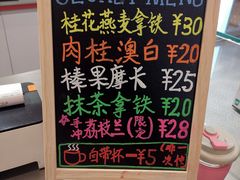 SECRET MENU
桂花燕麦拿铁 ¥30
肉桂澳白 ¥20
榛果摩卡 ¥25
抹茶拿铁 ¥20
手冲荔枝兰(限定) ¥28
自带杯一¥5